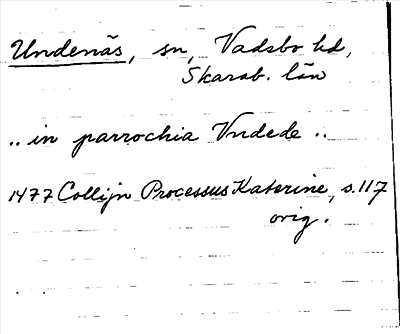 Undenäs, sn, Vadsbo hd,
Skarab. län
.. in parrochia Vndede ..
1477 Collijn Processus Katerine, s. 117
orig.